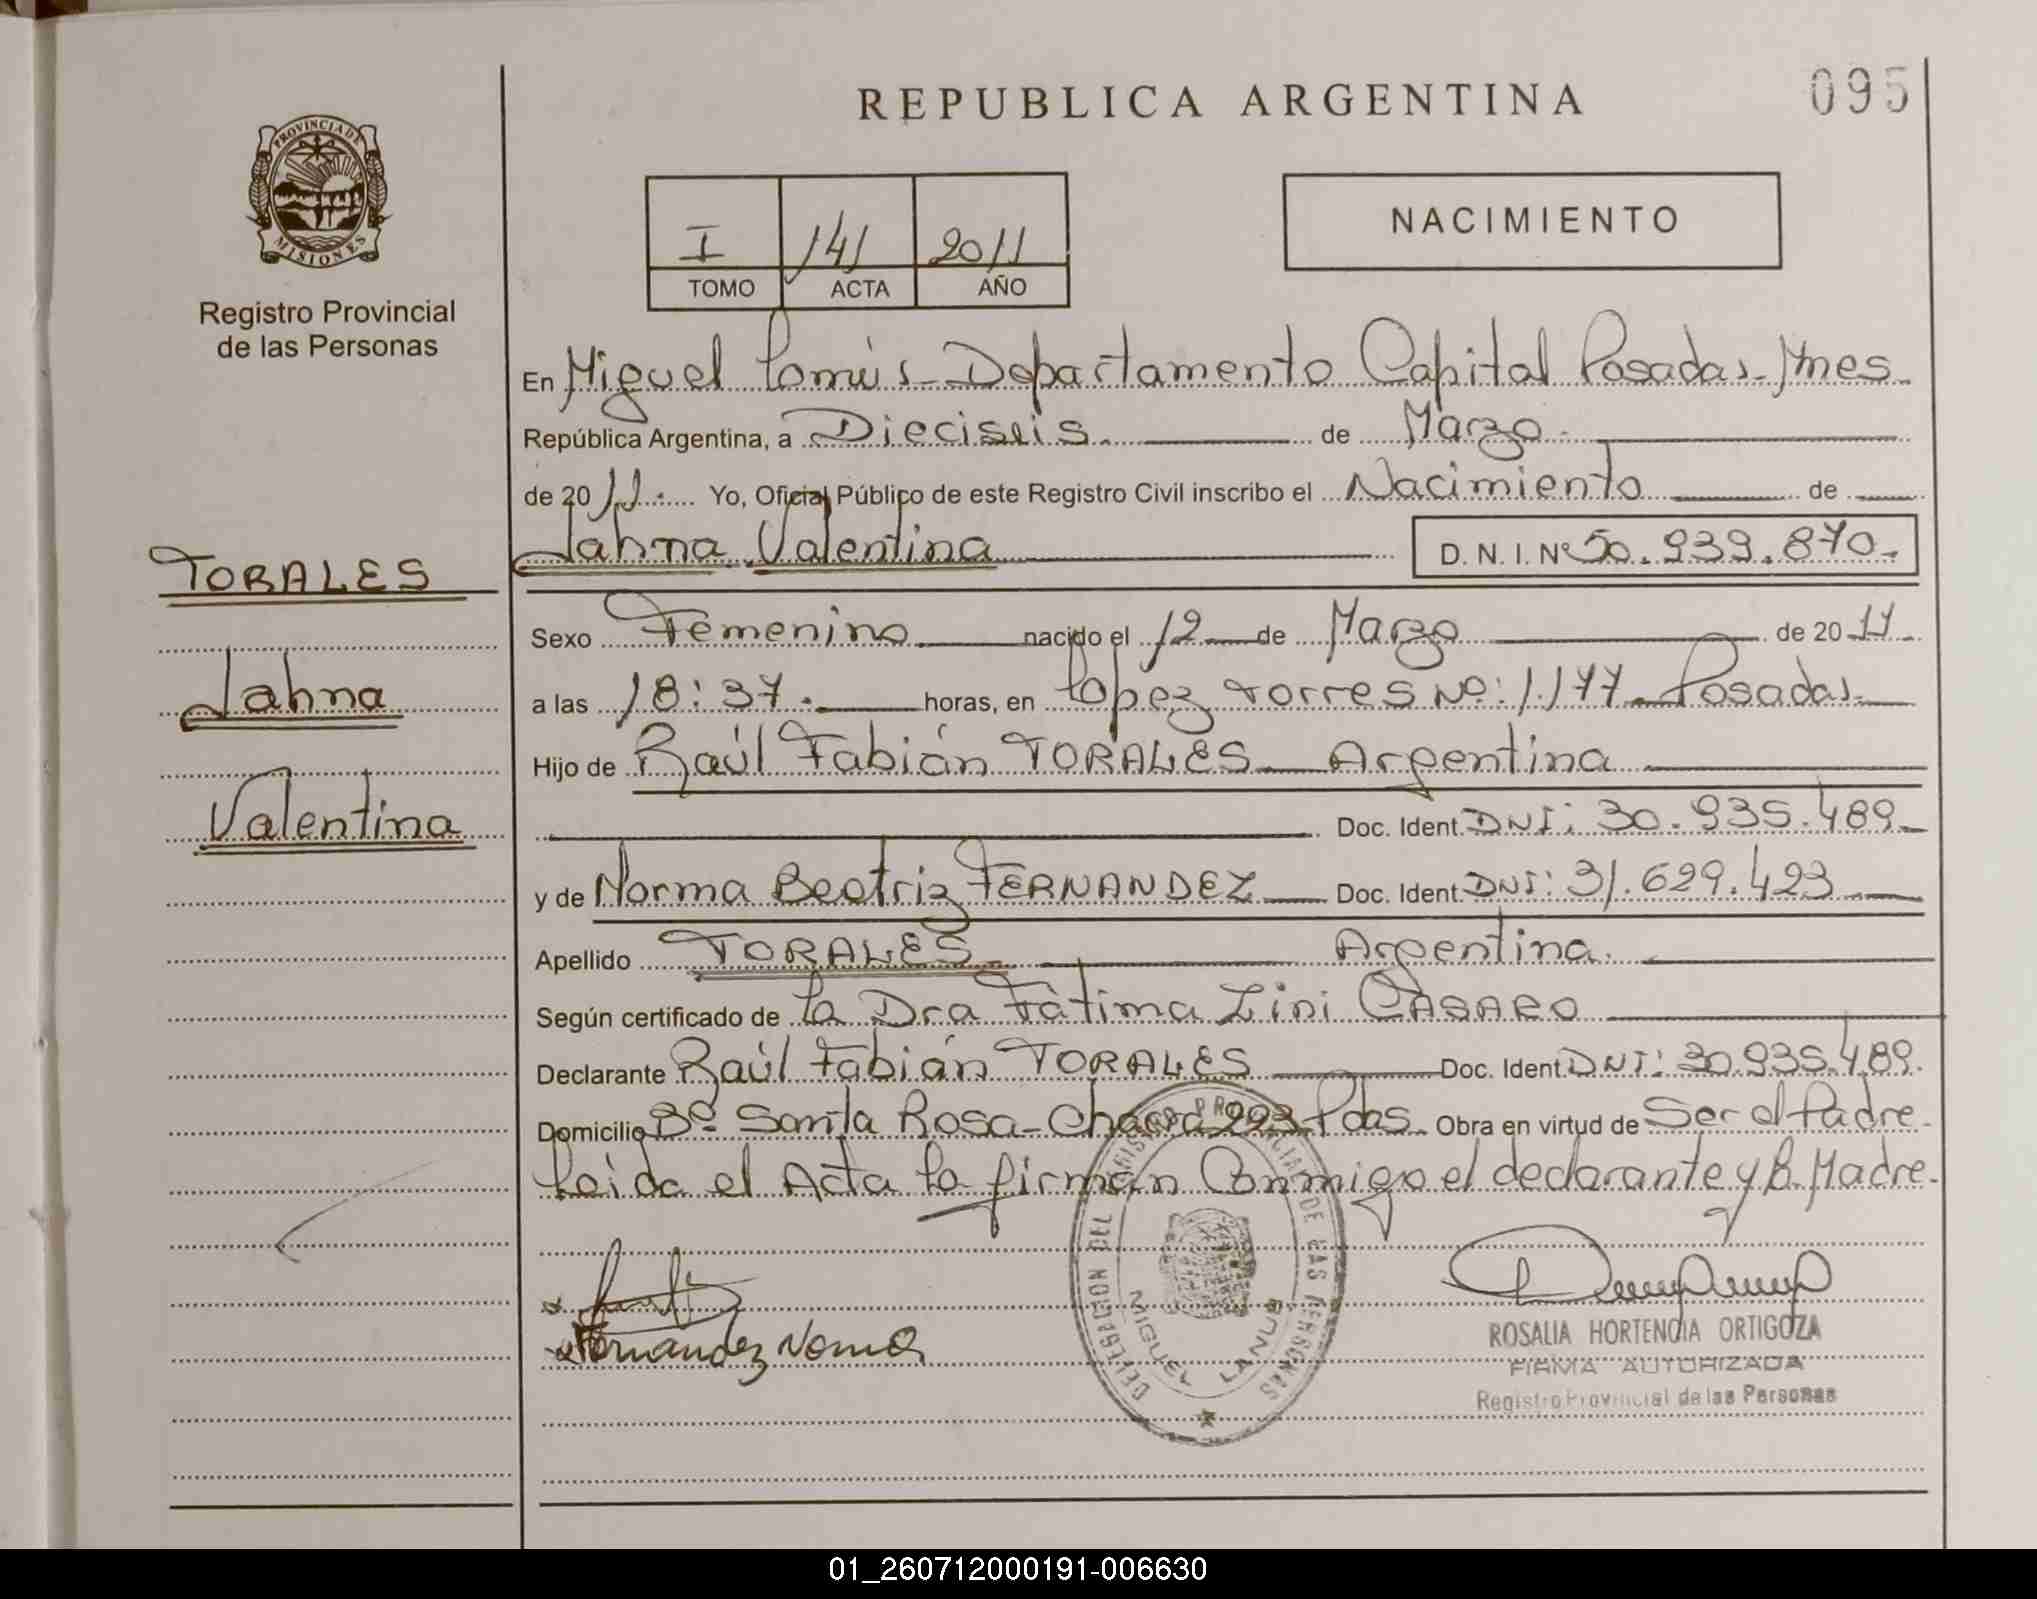 REPUBLICA ARGENTINA
095
PROVINCIA DE
MISIONES
Registro Provincial
de las Personas
I 141 2011
TOMO ACTA AÑO
NACIMIENTO
En Miguel Departamento Capital Posadas Mnes
República Argentina, a Dieciseis de Marzo
de 2011. Yo, Oficial Público de este Registro Civil inscribo el Nacimiento de
Jahna Valentina D. N. I. Nº 50.939.870
TORALES
Jahna
Valentina
Sexo Femenino nacido el 12 de Marzo de 2011
a las 18:37. horas, en López Torres Nº: 1.177 Posadas
Hijo de Raúl Fabián TORALES Argentina
Doc. Ident. DNI: 30.935.489
y de Norma Beatriz FERNANDEZ Doc. Ident. DNI: 31.629.423
Apellido TORALES Argentina
Según certificado de la Dra Fàtima Lini CASARO
Declarante Raúl Fabián TORALES Doc. Ident. DNI: 30.935.489.
Domicilio Bº Santa Rosa - Chacra 223 Pdas Obra en virtud de Ser el Padre
Leida el Acta la firman Conmigo el declarante y la Madre.
Fernandez Norma
DELEGACION DEL REGISTRO PROVINCIAL DE LAS PERSONAS
MIGUEL LANUS
ROSALIA HORTENCIA ORTIGOZA
FIRMA AUTORIZADA
Registro Provincial de las Personas
01_260712000191-006630